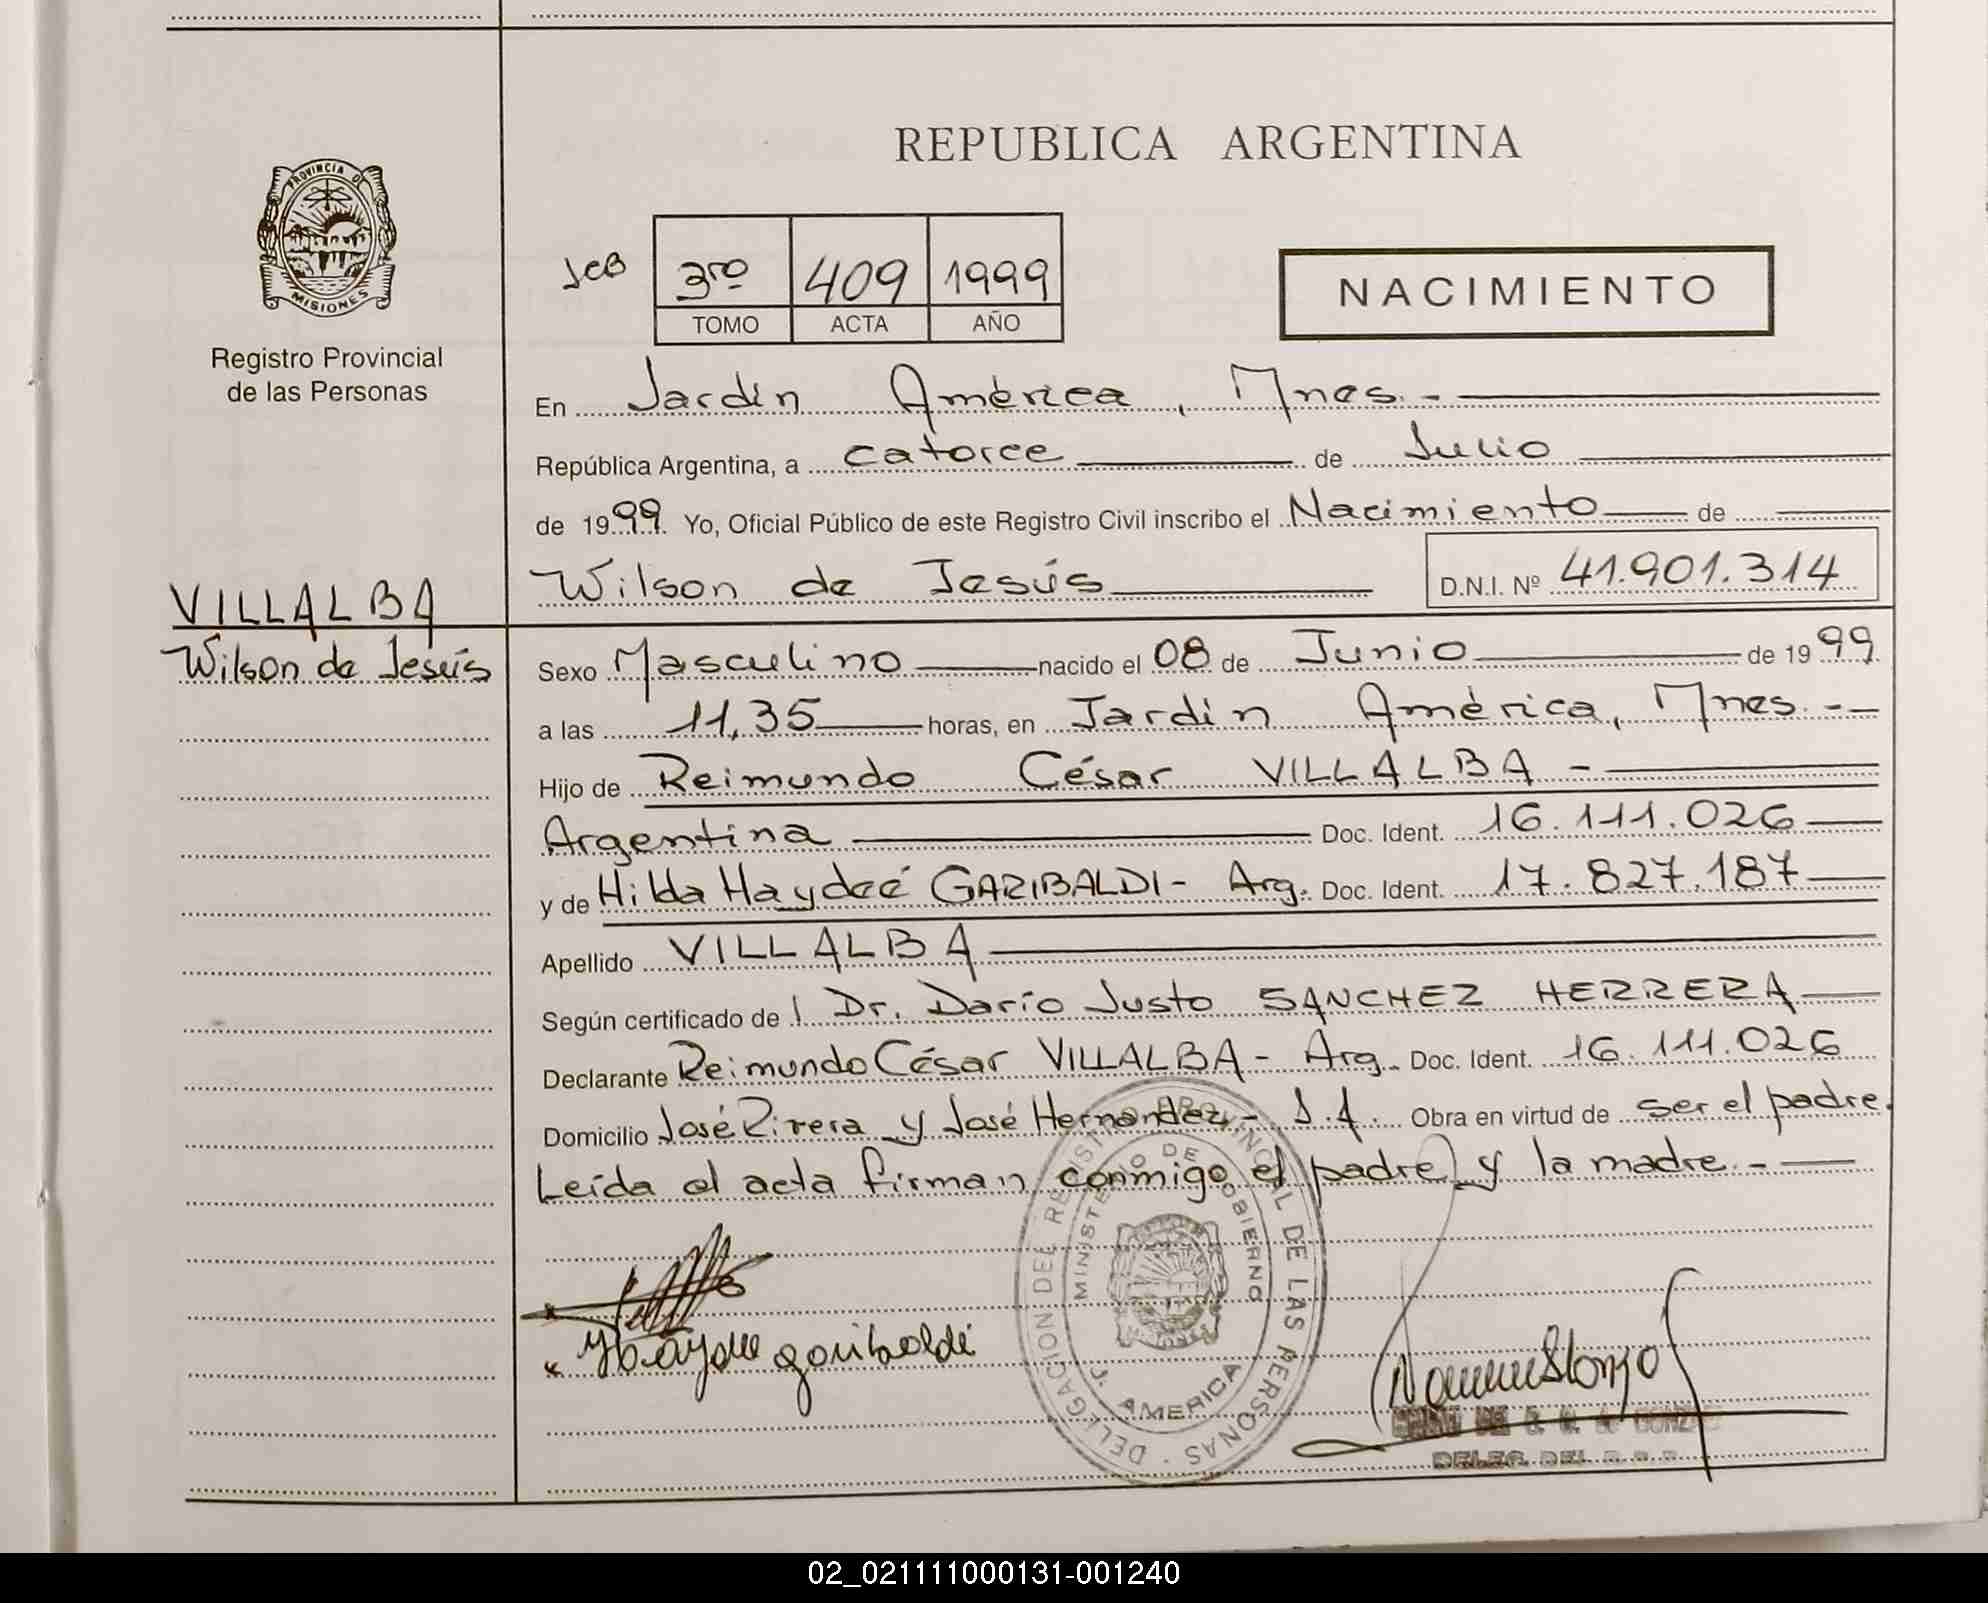 REPUBLICA ARGENTINA
PROVINCIA DE
MISIONES
Registro Provincial
de las Personas
JCB 3ro 409 1999
TOMO ACTA AÑO
NACIMIENTO
En Jardín América, Mnes.-
República Argentina, a catorce de Julio
de 1999. Yo, Oficial Público de este Registro Civil inscribo el Nacimiento de
Wilson de Jesús D.N.I. Nº 41.901.314
VILLALBA
Wilson de Jesús
Sexo Masculino nacido el 08 de Junio de 1999
a las 11,35 horas, en Jardín América, Mnes.--
Hijo de Reimundo César VILLALBA -
Argentina Doc. Ident. 16.111.026
y de Hilda Haydeé GARIBALDI - Arg. Doc. Ident. 17.827.187
Apellido VILLALBA
Según certificado de l Dr. Darío Justo SANCHEZ HERRERA
Declarante Reimundo César VILLALBA - Arg. Doc. Ident. 16.111.026
Domicilio José Rivera y José Hernandez - J.A. Obra en virtud de ser el padre.
Leída el acta firman conmigo el padre y la madre.-
DELEGACION DEL REGISTRO PROVINCIAL DE LAS PERSONAS
MINISTERIO DE GOBIERNO
J. AMERICA
Haydee garibaldi
DELEG. DEL R.P.P.
02_021111000131-001240